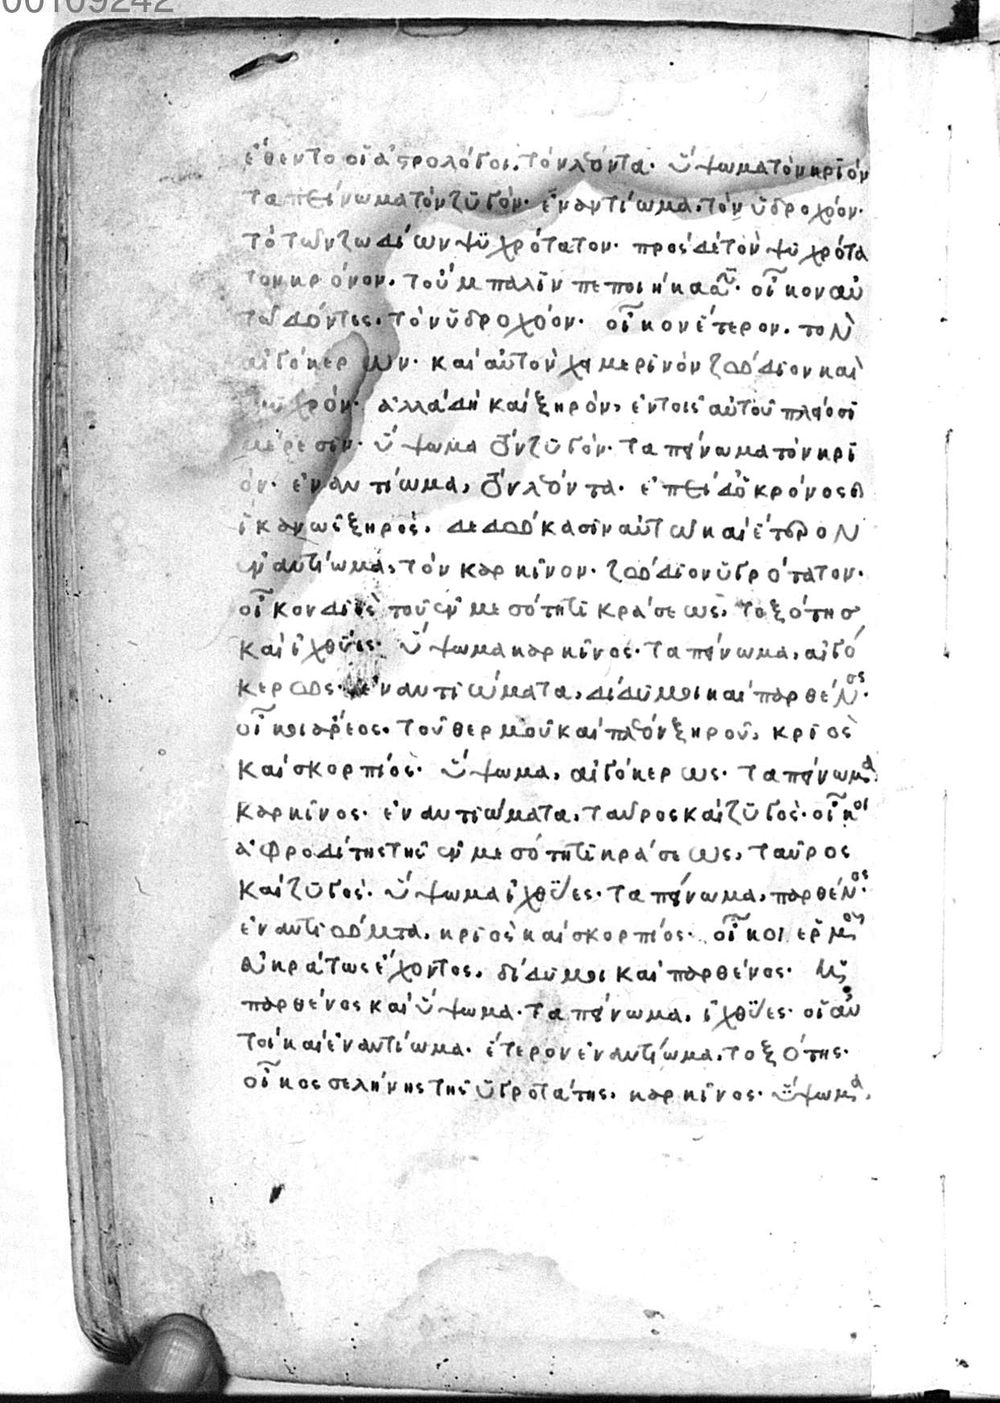 00109242
ἔθεντο οἱ ἀστρολόγοι. τὸν λέοντα· ὕψωμα τὸν κριόν
ταπείνωμα τὸν ζυγόν· ἐναντίωμα, τὸν ὑδροχόον·
τὸ τῶν ζωδίων ψυχρότατον· πρὸς δὲ τὸν ψυχρότα
τον κρόνον. τοὔμπαλιν πεποιήκασι· οἶκον αὐ
τῶ δόντες. τὸν ὑδροχόον· οἶκον ἕτερον. τὸν
αἰγόκερων· καὶ αὐτὸν χειμερινὸν ζώδιον καὶ
ψυχρόν· ἀλλὰ δὴ καὶ ξηρόν, ἐν τοῖς αὐτοῦ πλείοσι
μέρεσιν· ὕψωμα τὸν ζυγόν· ταπείνωμα τὸν κρι
όν· ἐναντίωμα, τὸν λέοντα· ἐπεὶ δὲ ὁ κρόνος
ἱκανῶς ξηρὸς. δεδώκασιν αὐτῶ καὶ ἕτερον
ἐναντίωμα, τὸν καρκίνον· ζώδιον ὑγρότατον·
οἶκον διὸς τοῦ ἐν μεσότητι κράσεως, τοξότης
καὶ ἰχθύες· ὕψωμα καρκίνος· ταπείνωμα, αἰγό
κερως· ἐναντιώματα, δίδυμοι καὶ παρθένος·
οἶκοι ἄρεος. τοῦ θερμοῦ καὶ πλέον ξηροῦ, κριὸς
καὶ σκορπίος· ὕψωμα, αἰγόκερως· ταπείνωμα
καρκίνος· ἐναντιώματα, ταῦρος καὶ ζυγὸς· οἶκοι
ἀφροδίτης τῆς ἐν μεσότητι κράσεως, ταῦρος
καὶ ζυγὸς. ὕψωμα ἰχθύες· ταπείνωμα, παρθένος·
ἐναντιώματα, κριὸς καὶ σκορπίος· οἶκοι ἑρμοῦ
ἀκράτως ἔχοντος. δίδυμοι καὶ παρθένος·
παρθένος καὶ ὕψωμα· ταπείνωμα, ἰχθύες· οἱ αὐ
τοὶ καὶ ἐναντίωμα· ἕτερον ἐναντίωμα, τοξότης·
οἶκος σελήνης τῆς ὑγροτάτης, καρκίνος· ὕψωμα,